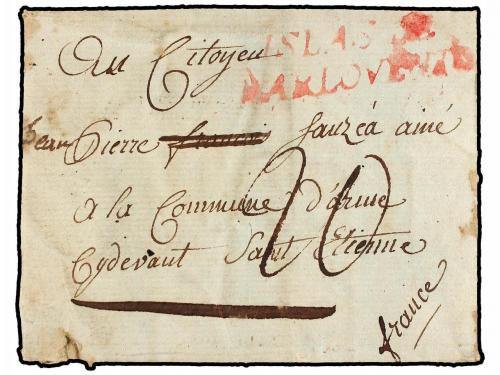 Au Citoyen
ISLAS DE
BARLOVENTO
Jean Pierre françois Sauzéa ainé
a la Commune d'arme
Cydevant Saint Etienne
20
france